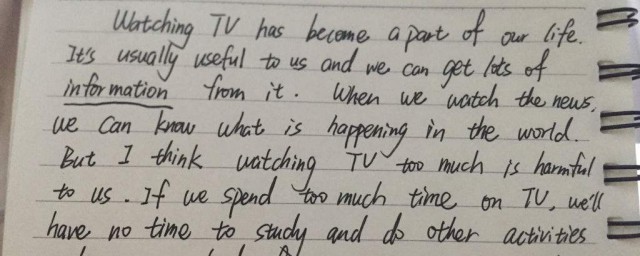 Watching TV has become a part of our life.
It's usually useful to us and we can get lots of
information from it. When we watch the news,
we can know what is happening in the world.
But I think watching TV too much is harmful
to us. If we spend too much time on TV, we'll
have no time to study and do other activities